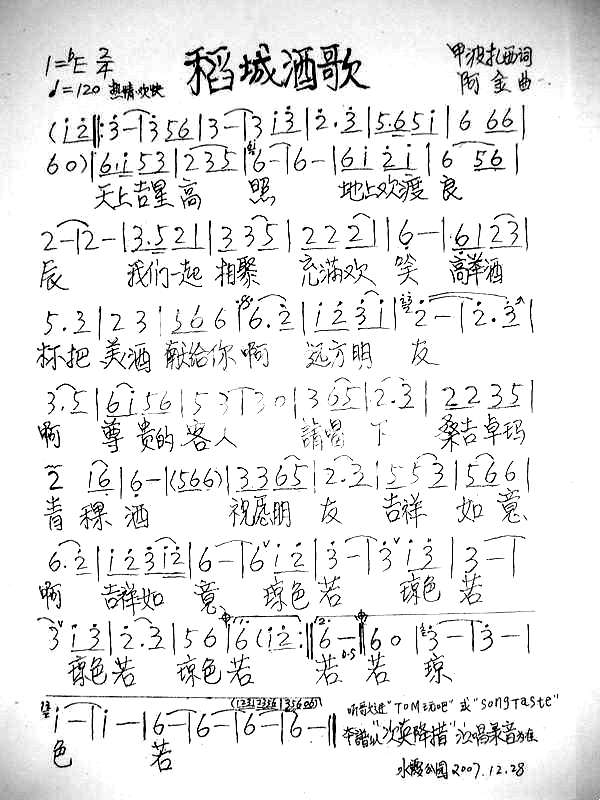 稻城酒歌
1=♭E 2/4
♩=120 热情.欢快
甲波扎西词
阿金曲
(i̇ 2̇ ‖: 3̇ – | 3̇ 5 6 | 3̇ – | 3̇ i̇ 3̇ | 2̇ . 3̇ | 5 . 6 5 i̇ | 6 6 6 |
6 0 ) | 6 . i̇ 5 3 | 2 3 5 | 6 – | 6 – | 6 i̇ 2̇ i̇ | 6 5 6 |
天上吉星高 照 地上欢渡 良
2 – | 2 – | 3 . 5 2 | 3 3 5 | 2 2 2 | 6 – | 6 1 2 3 |
辰 我们一起 相聚 充满欢 笑 高举酒
5 . 3 | 2 3 | 5 6 6 | 6 . 2̇ | i̇ 2̇ 3̇ i̇ | 2̇ – | 2̇ . 3̇ |
杯把 美酒 献给你 啊 远方朋 友
3 . 5 | 6 i̇ 5 6 | 5 3 | 3 0 | 3 6 5 | 2 . 3 | 2 2 3 5 |
啊 尊贵的 客人 請唱 下 桑吉卓玛
2 1 6 | 6 – | (5 6 6) | 3 3 6 5 | 2 . 3 | 5 5 3 | 5 6 6 |
青稞 酒 祝愿朋 友 吉祥 如意
6 . 2̇ | i̇ 2̇ 3̇ i̇ 2̇ | 6 – | 6 ⱽ i̇ 2̇ | 3̇ – | 3̇ ⱽ i̇ 3̇ | 3̇ – |
啊 吉祥如 意 琼色 若 琼色 若
3̇ ⱽ i̇ 3̇ | 2̇ . 3̇ | 5 6 | 6 (i̇ 2̇ :‖ 6 – | 6 0 | 3̇ – | 3̇ – |
琼色 若 琼色 若 若 若 琼
i̇ – | i̇ – | 6 – | 6 – | 6 – | 6 – ‖
色 若
听歌进"TOM玩吧"或"SongTaste"
李譜以"次英降措"演唱录音为准
2007.12.28